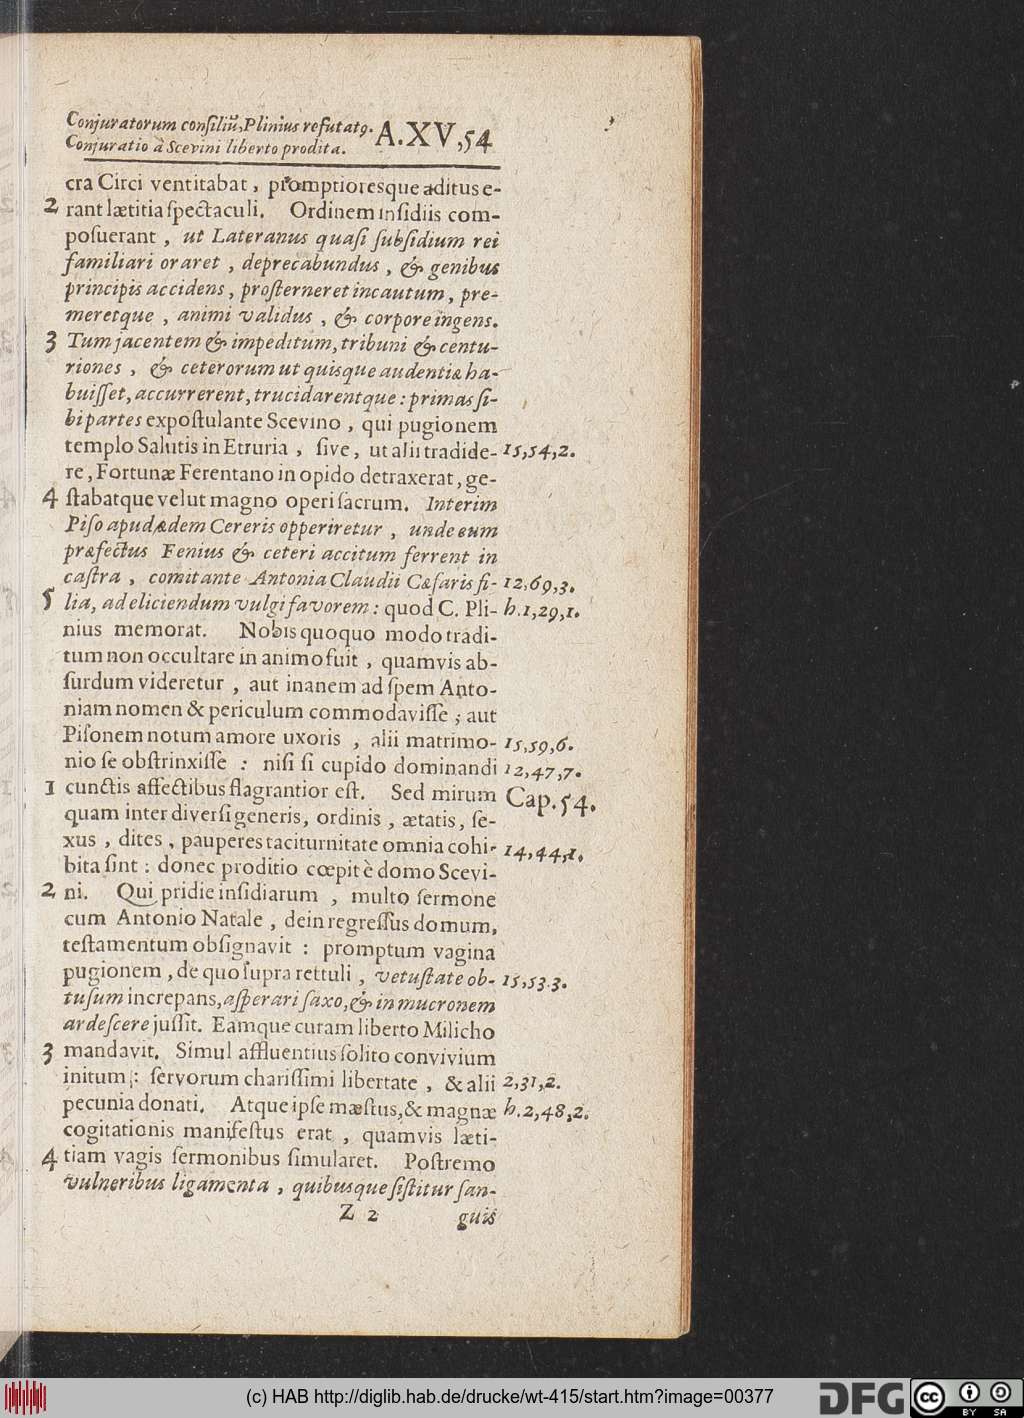 Conjuratorum consiliũ, Plinius refutatꝯ. A.XV,54
Conjuratio à Scevini liberto prodita.
cra Circi ventitabat, promptioresque aditus e-
2 rant lætitia ſpectaculi. Ordinem inſidiis com-
poſuerant, ut Lateranus quaſi ſubſidium rei
familiari oraret, deprecabundus, & genibus
principis accidens, proſterneret incautum, pre-
meretque, animi validus, & corpore ingens.
3 Tum jacentem & impeditum, tribuni & centu-
riones, & ceterorum ut quisque audentiæ ha-
buiſſet, accurrerent, trucidarentque: primas ſi-
bi partes expoſtulante Scevino, qui pugionem
templo Salutis in Etruria, ſive, ut alii tradide- 15,54,2.
re, Fortunæ Ferentano in opido detraxerat, ge-
4 ſtabatque velut magno operi ſacrum. Interim
Piſo apud ædem Cereris opperiretur, unde eum
præfectus Fenius & ceteri accitum ferrent in
caſtra, comitante Antonia Claudii Cæſaris fi- 12,69,3.
5 lia, ad eliciendum vulgi favorem: quod C. Pli- h.1,29,1.
nius memorat. Nobis quoquo modo tradi-
tum non occultare in animo fuit, quamvis ab-
ſurdum videretur, aut inanem ad ſpem Anto-
niam nomen & periculum commodaviſſe; aut
Piſonem notum amore uxoris, alii matrimo- 15,59,6.
nio ſe obſtrinxiſſe: niſi ſi cupido dominandi 12,47,7.
1 cunctis affectibus flagrantior eſt. Sed mirum Cap.54.
quam inter diverſi generis, ordinis, ætatis, ſe-
xus, dites, pauperes taciturnitate omnia cohi- 14,44,1.
bita ſint: donec proditio cœpit è domo Scevi-
2 ni. Qui pridie inſidiarum, multo ſermone
cum Antonio Natale, dein regreſſus domum,
teſtamentum obſignavit: promptum vagina
pugionem, de quo ſupra rettuli, vetuſtate ob- 15,53.3.
tuſum increpans, aſperari ſaxo, & in mucronem
ardeſcere juſſit. Eamque curam liberto Milicho
3 mandavit. Simul affluentius ſolito convivium
initum: ſervorum chariſſimi libertate, & alii 2,31,2.
pecunia donati. Atque ipſe mæſtus, & magnæ h.2,48,2.
cogitationis manifeſtus erat, quamvis læti-
4 tiam vagis ſermonibus ſimularet. Poſtremo
vulneribus ligamenta, quibusque ſiſtitur ſan-
Z 2 guis
(c) HAB http://diglib.hab.de/drucke/wt-415/start.htm?image=00377 DFG cc BY SA